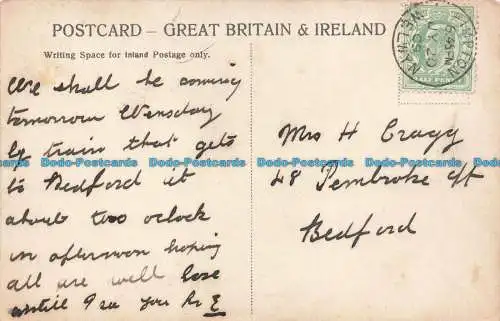 POSTCARD – GREAT BRITAIN & IRELAND
Writing Space for Inland Postage only.
We shall be coming
tomorrow Wensday
by train that gets
to Bedford it
about two oclock
in afternoon hoping
all are well love
until I see you
Mrs H Cragg
48 Pembroke St
Bedford
HALF PENNY
Dodo-Postcards Dodo-Postcards Dodo-Postcards Dodo-Postcards Dodo-Postcards
Dodo-Postcards Dodo-Postcards Dodo-Postcards Dodo-Postcards Dodo-Postcards